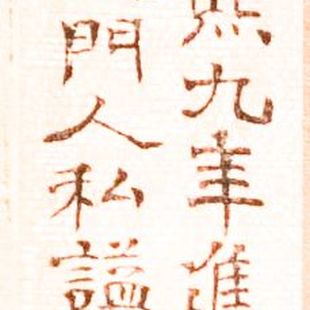 熙九年進
門人私謚